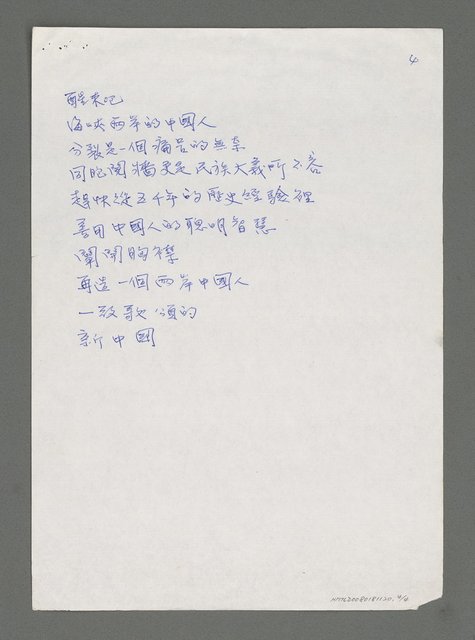 4
醒來吧
海峽兩岸的中國人
分裂是一個痛苦的無奈
同胞鬩牆更是民族大義所不容
趕快從五千年的歷史經驗裡
善用中國人的聰明智慧
闡開胸襟
再造一個兩岸中國人
一致歌頌的
新中國
NMTL20080181120, 4/4